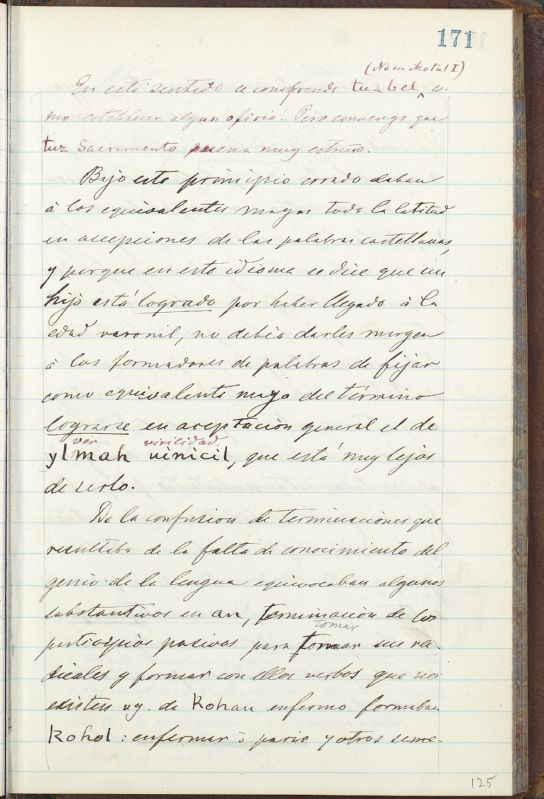 171
(Nacu Motul I)
En este sentido se comprende tuzbel, co-
mo establecer algun oficio. Pero convengo que
tuz Sacramento suena muy estraño.
Bajo este principio errado daban
á los equivalentes mayas toda la latitud
en acepciones de las palabras castellanas,
y porque en este idioma se dice que un
hijo está logrado por haber llegado á la
edad varonil, no debió darles margen
á los formadores de palabras de fijar
como equivalente maya del término
lograrse en aceptacion general el de
ver virilidad
ylmah vinicil, que está muy lejos
de serlo.
De la confusion de terminaciones que
resultaba de la falta de conocimiento del
genio de la lengua equivocaban algunos
substantivos en an, terminacion de los
tomar
participios pasivos para formar sus ra-
dicales y formar con ellos verbos que no
existen v.g. de kohan enfermo formaban
kohol: enfermar ó parir y otros seme-
125